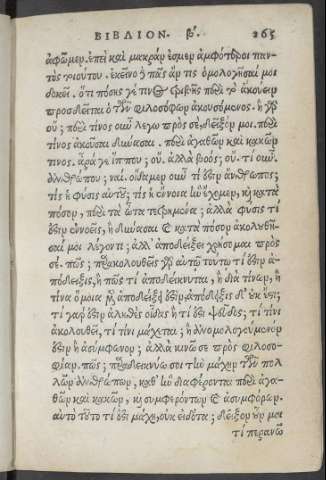 ΒΙΒΛΙΟΝ. β'. 265
ἀφῶμεν. ἐπεὶ καὶ μακράν ἐσμεν ἀμφότεροι παν
τὸς τοιούτου. ἐκεῖνο γ' πᾶς ἄν τις ὁμολογῆσαι μοι
δοκεῖ. ὅτι πόσης γέ τινος τριβῆς περὶ τὸ ἀκούειν
προσδεῖται ὁ τῶν φιλοσόφων ἀκουσόμενος. ἢ γὰρ
οὔ; περὶ τίνος οὖν λέγω πρὸς σὲ, δεῖξόν μοι. περὶ
τίνος ἀκοῦσαι δύνασαι. περὶ ἀγαθῶν καὶ κακῶν
τινος. ἆρά γε ἵππου; οὔ. ἀλλὰ βοός; οὔ. τί οὖν.
ἀνθρώπου; ναί. οἴδαμεν οὖν τί ἐστιν ἄνθρωπος,
τίς ἡ φύσις αὐτοῦ; τίς ἡ ἔννοια ἣν ἔχομεν, καὶ κατὰ
πόσον, περὶ τὰ ὦτα τετρημένα; ἀλλὰ φύσις τί
ἐστιν ἐννοεῖς, ἢ δύνασαι καὶ κατὰ πόσον ἀκολουθῆ
σαί μοι λέγοντι; ἀλλ' ἀποδείξει χρήσομαι πρὸς
σέ. πῶς; παρακολουθεῖς γὰρ αὐτῷ τούτῳ τί ἐστιν ἀ-
πόδειξις, ἢ πῶς τί ἀποδείκνυται, ἢ διὰ τίνων, ἢ
τίνα ὅμοια μὲν ἀποδείξει ἐστὶν, ἀπόδειξις δ' οὐκ ἔστι;
τί γάρ ἐστιν ἀληθὲς οἶδας ἢ τί ἐστι ψεῦδος; τί τινι
ἀκολουθεῖ, τί τινι μάχεται; ἢ ἀνομολογούμενον
ἐστιν ἢ ἀσύμφωνον; ἀλλὰ κινῶ σε πρὸς φιλοσο-
φίαν. πῶς; παραδεικνύω σοι τὴν μάχην τῶν πολ
λῶν ἀνθρώπων, καθ' ἣν διαφέρονται περὶ ἀγα-
θῶν καὶ κακῶν, καὶ συμφερόντων καὶ ἀσυμφόρων.
αὐτὸ τοῦτο τί ἐστι μάχη, οὐκ εἰδότα; δεῖξον οὖν μοι
τί περανῶ